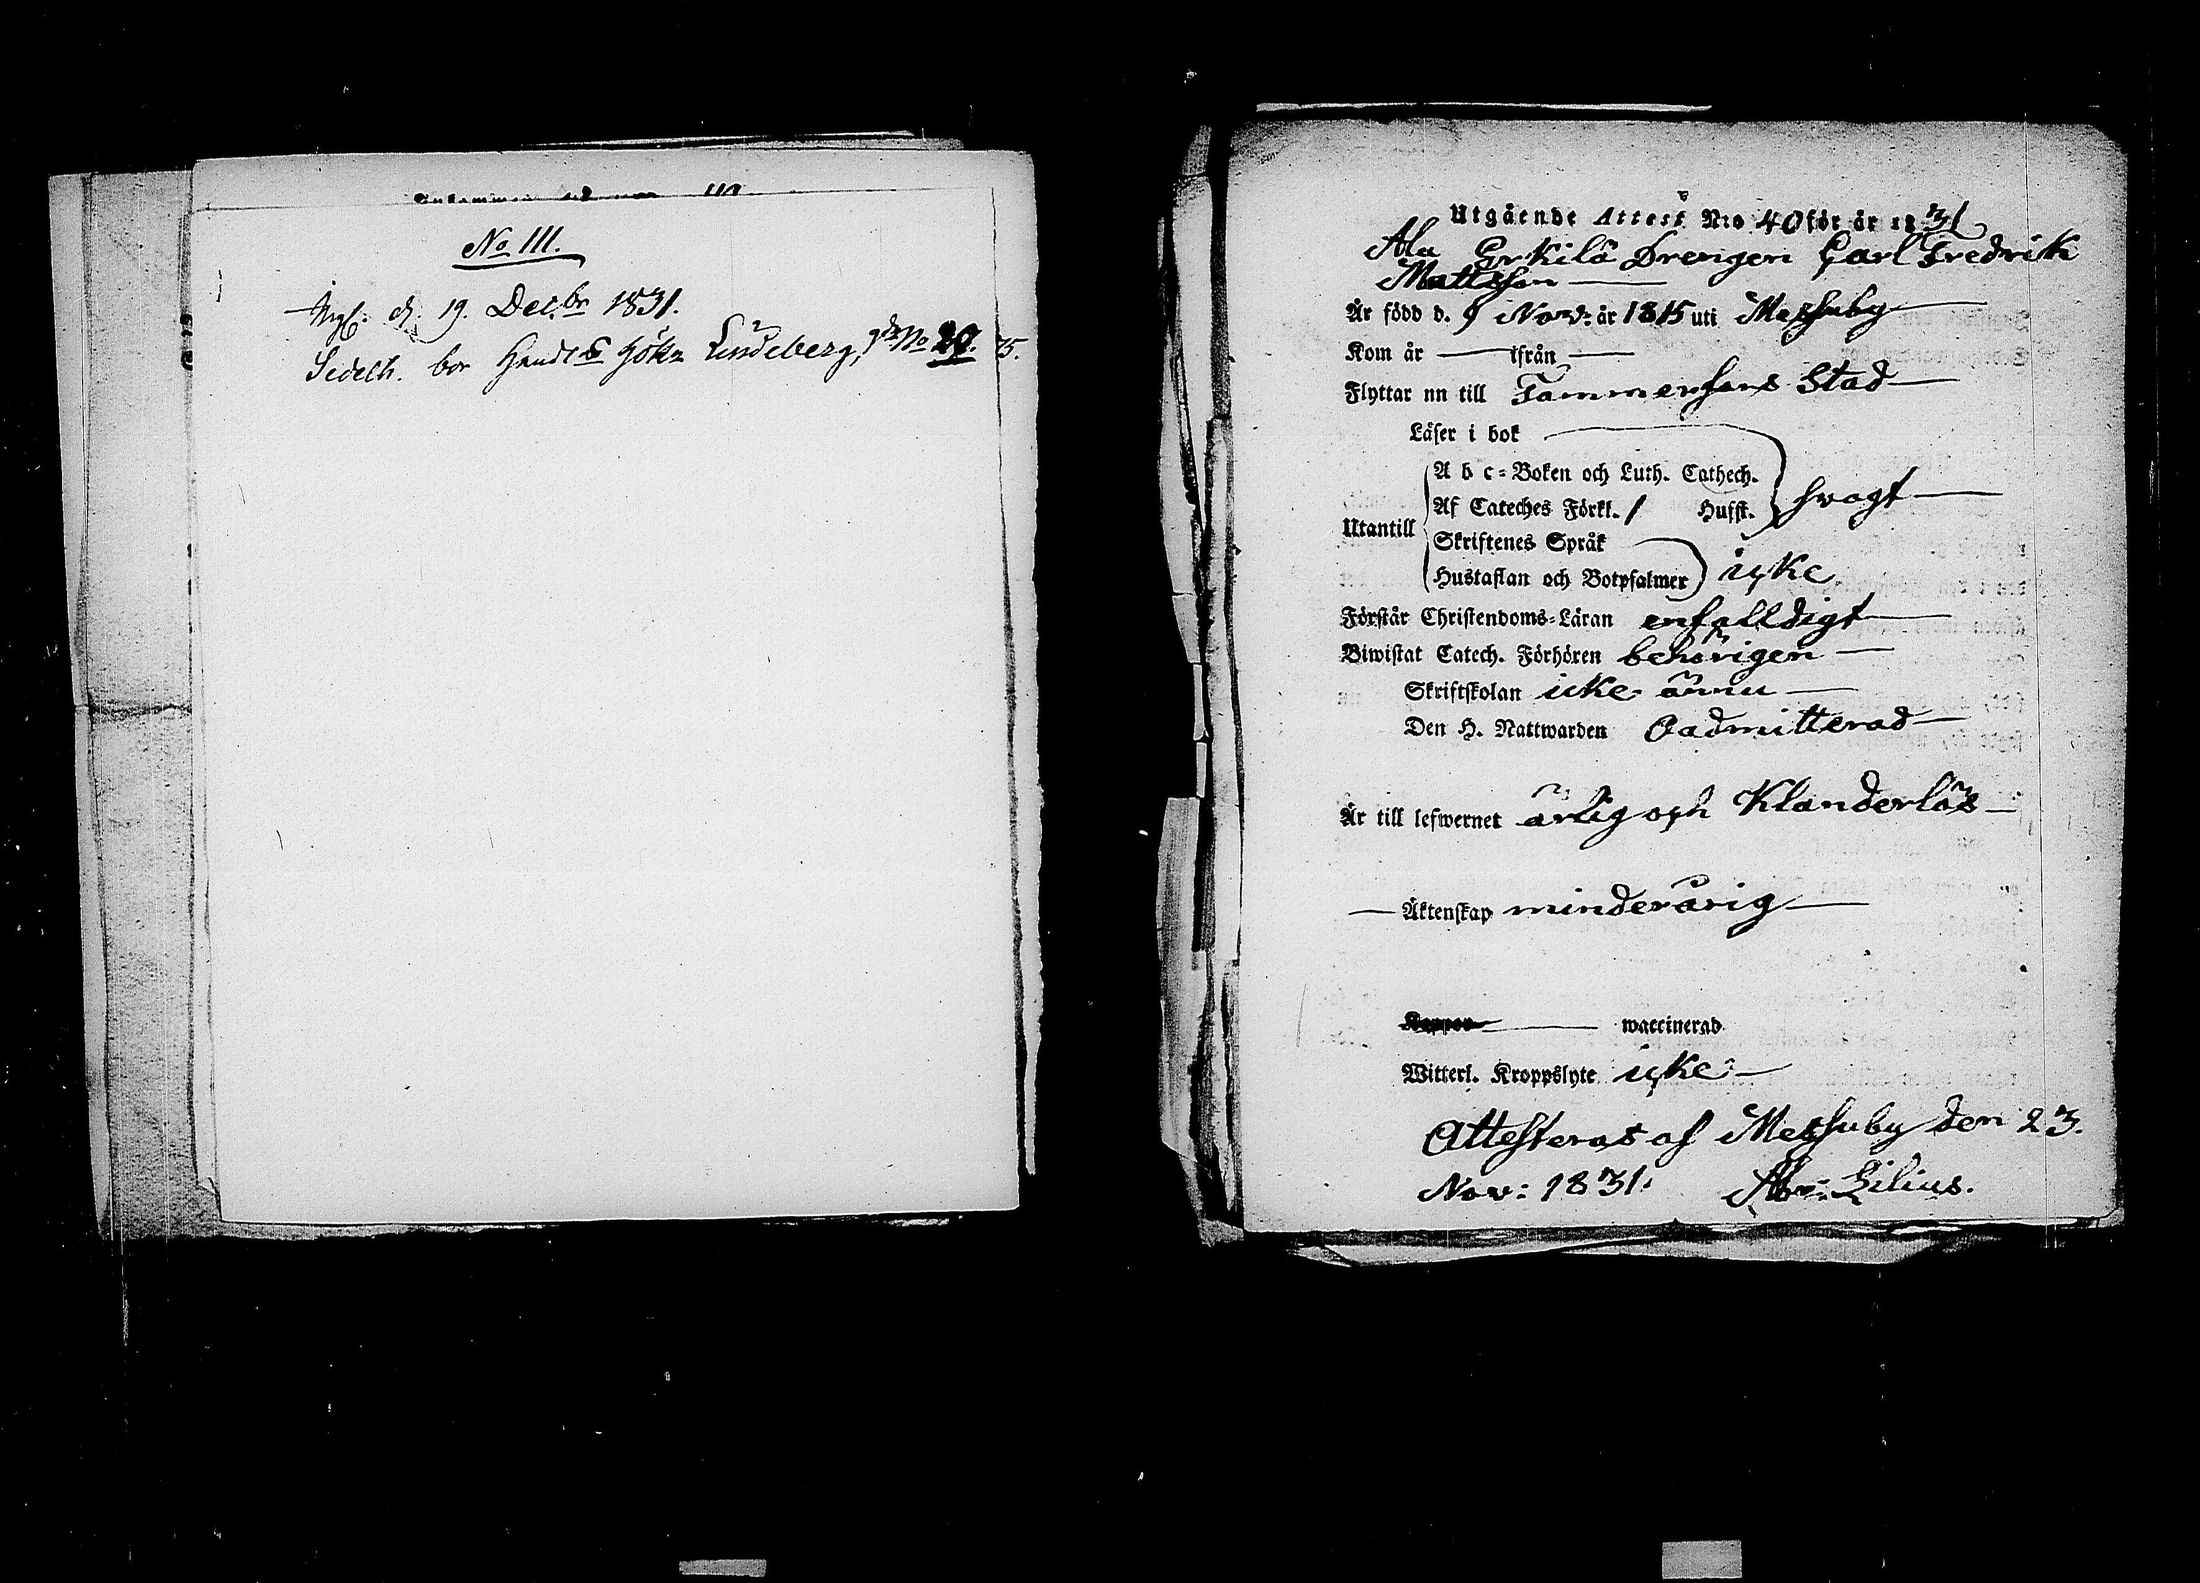 No 111.
d. 19. Decbr 1831.
bor Lindeberg, No 29. 75.
Utgående Attest N:o 40 för år 1831
Ala Erkilä Drengen Carl Fredrik
Mattsson
Är född d. 9 Nov: år 1815 uti Messuby
Kom år ifrån
Flyttar nu till Tammerfors Stad
Läser i bok
A b c-Boken och Luth. Cathech.
Af Cateches Förkl. / Hufst. svagt
Utantill
Skriftenes Språk
Hustaflan och Botpsalmer icke
Förstår Christendoms-Läran enfalldigt
Biwistat Catech. Förhören behörigen
Skriftskolan icke ännu
Den H. Nattwarden Oadmitterad
Är till lefwernet ärlig och Klanderlös
Äktenskap minderårig
Koppor waccinerad
Witterl. Kroppslyte icke
Attesteras af Messuby den 23.
Nov: 1831. Abr: Lilius.